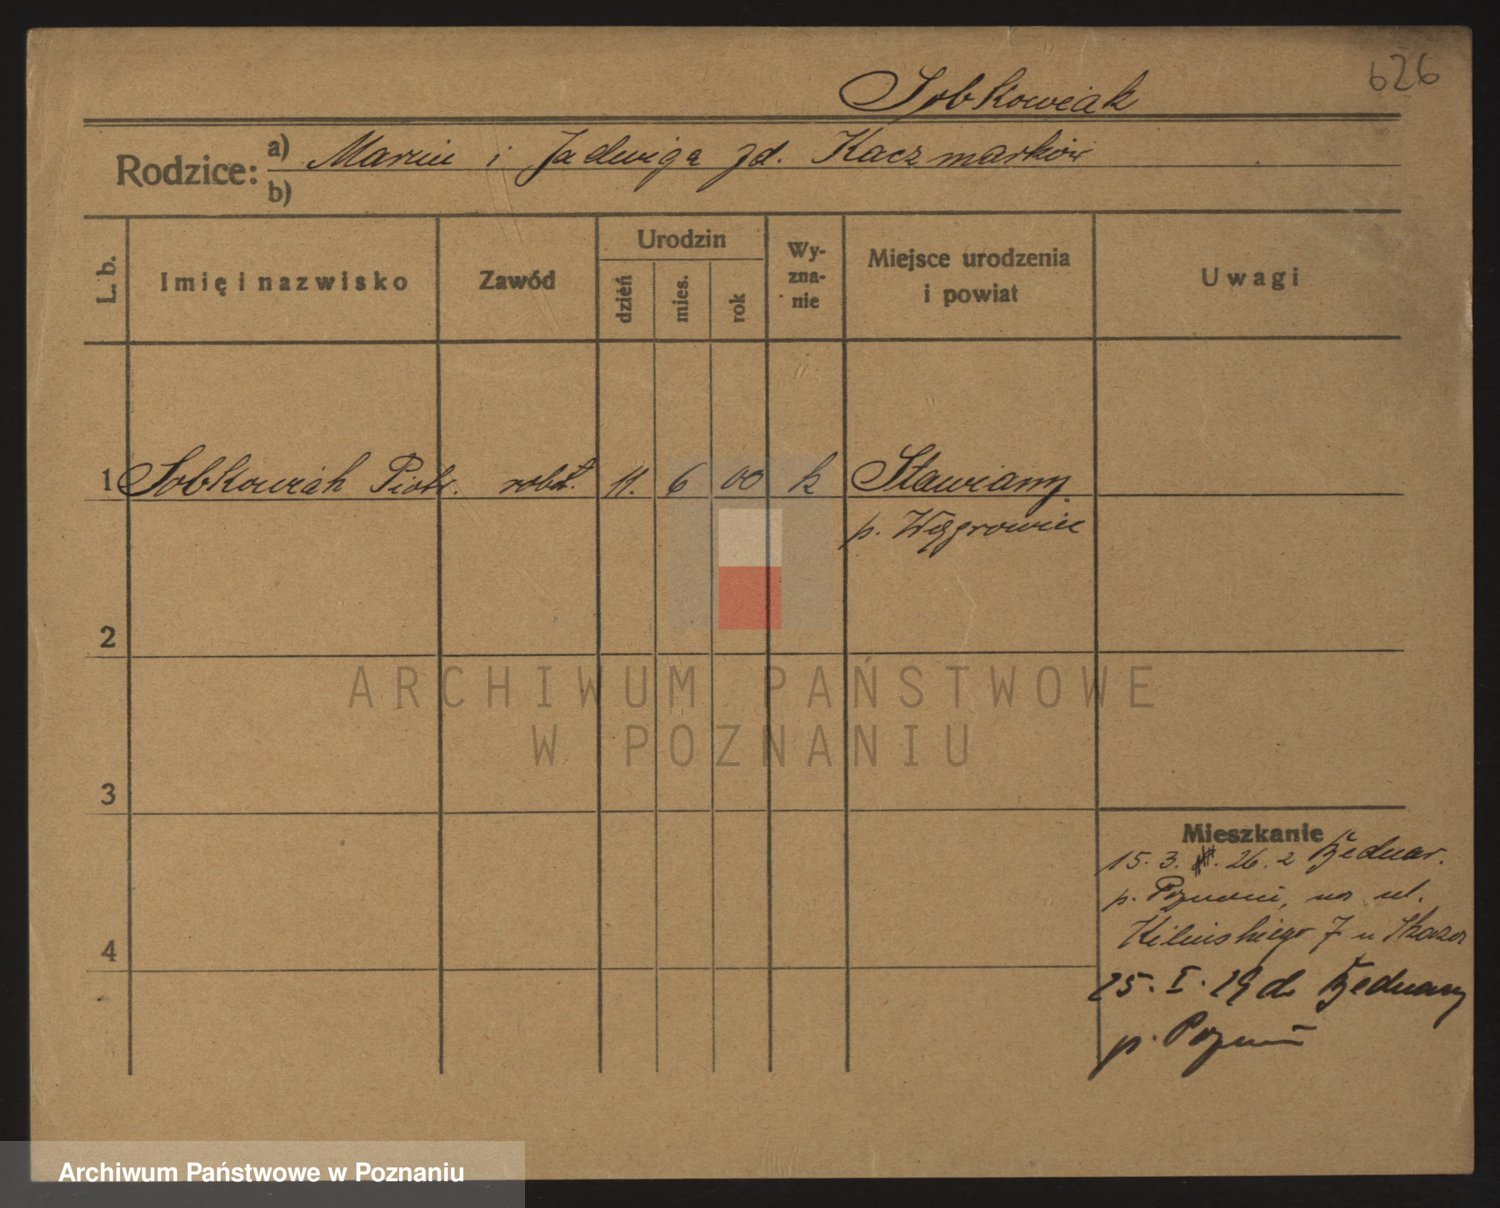 626
Sobkowiak
Rodzice:
a) Marcin i Jadwiga zd. Kaczmarków
b)
L. b.
Imię i nazwisko
Zawód
Urodzin
dzień
mies.
rok
Wy-
zna-
nie
Miejsce urodzenia
i powiat
Uwagi
1 Sobkowiak Piotr. robot. 11. 6 00 k Sławiany
p. Wągrowiec
2
3
4
Mieszkanie
15. 3. 26. z Bednar.
p. Poznani, na ul.
Kilińskiego 7 u
25. I. 29 do Bednary
p. Poznań
ARCHIWUM PAŃSTWOWE
W POZNANIU
Archiwum Państwowe w Poznaniu